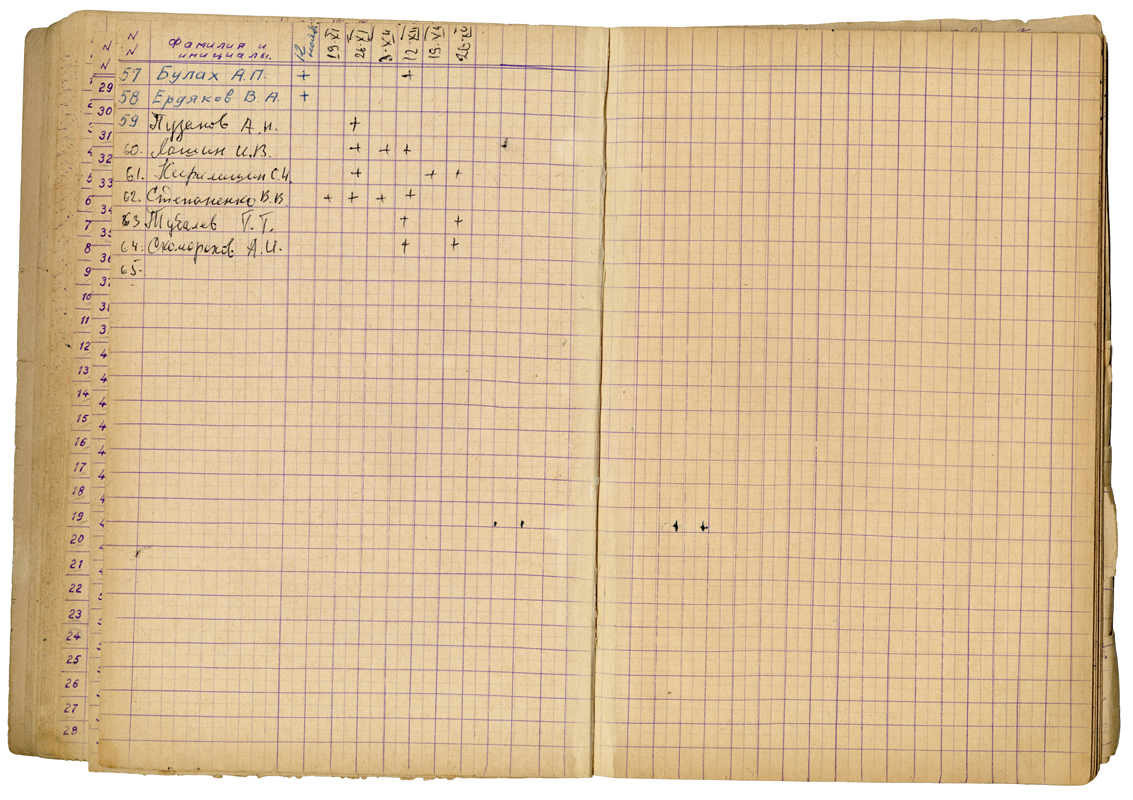 N N Фамилия и инициалы. 19-XI 26-XI 3-XII 12-XII 19-XII 26-XII
57 Булах А.П. + +
58 Ердяков В.А. +
59 Пузанов А.Н. +
60. Лашин И.В. + + +
61. + + +
62. Степаненко В.В. + + + +
63 Тубалев Г.Г. + +
64. Скоморохов А.И. + +
65.
N
N
29
30
31
32
33
34
35
36
4
5
6
7
8
9
10
11
12
13
14
15
16
17
18
19
20
21
22
23
24
25
26
27
28